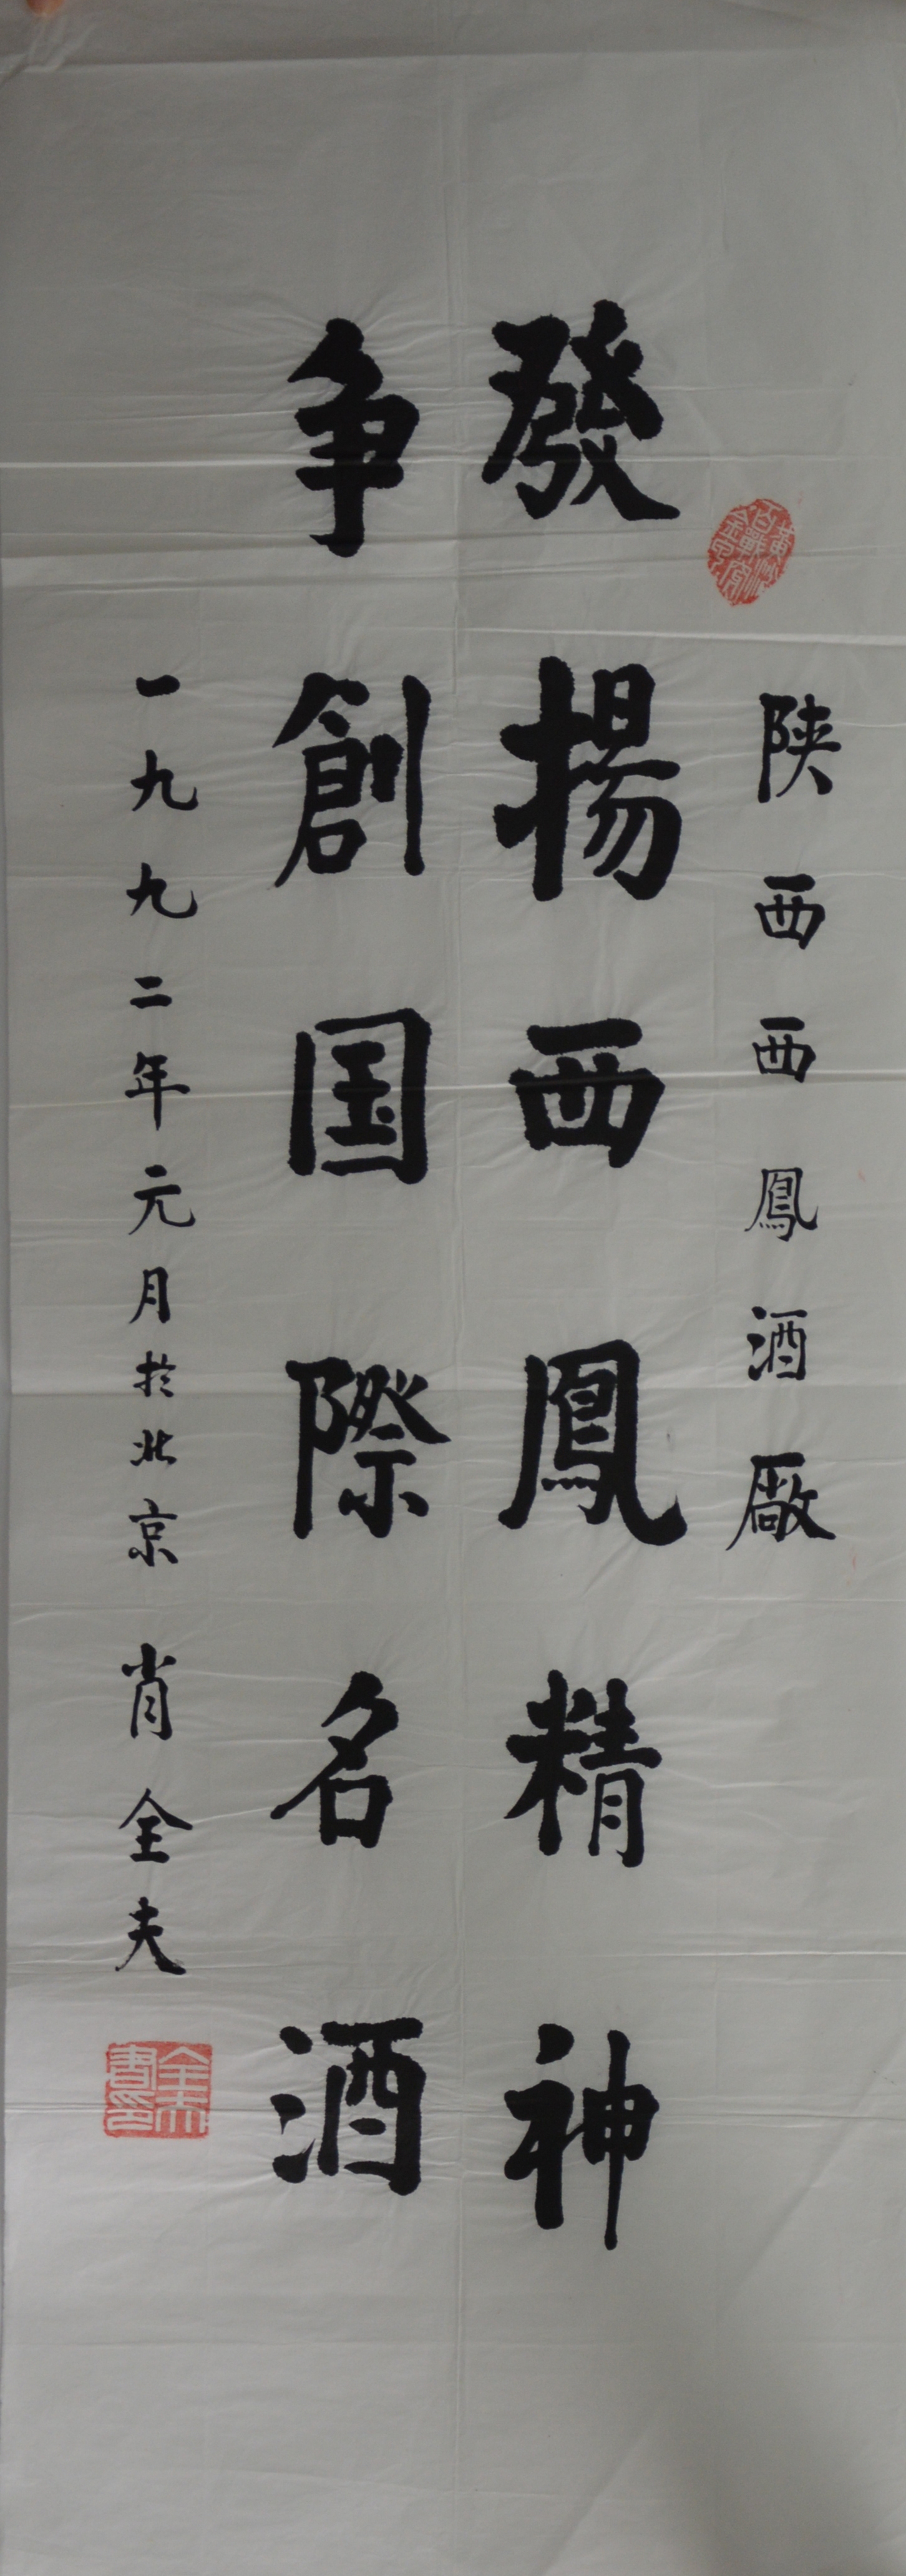 陕西西鳳酒廠
發揚西鳳精神
争創国際名酒
一九九二年元月於北京 肖全夫
全夫書印